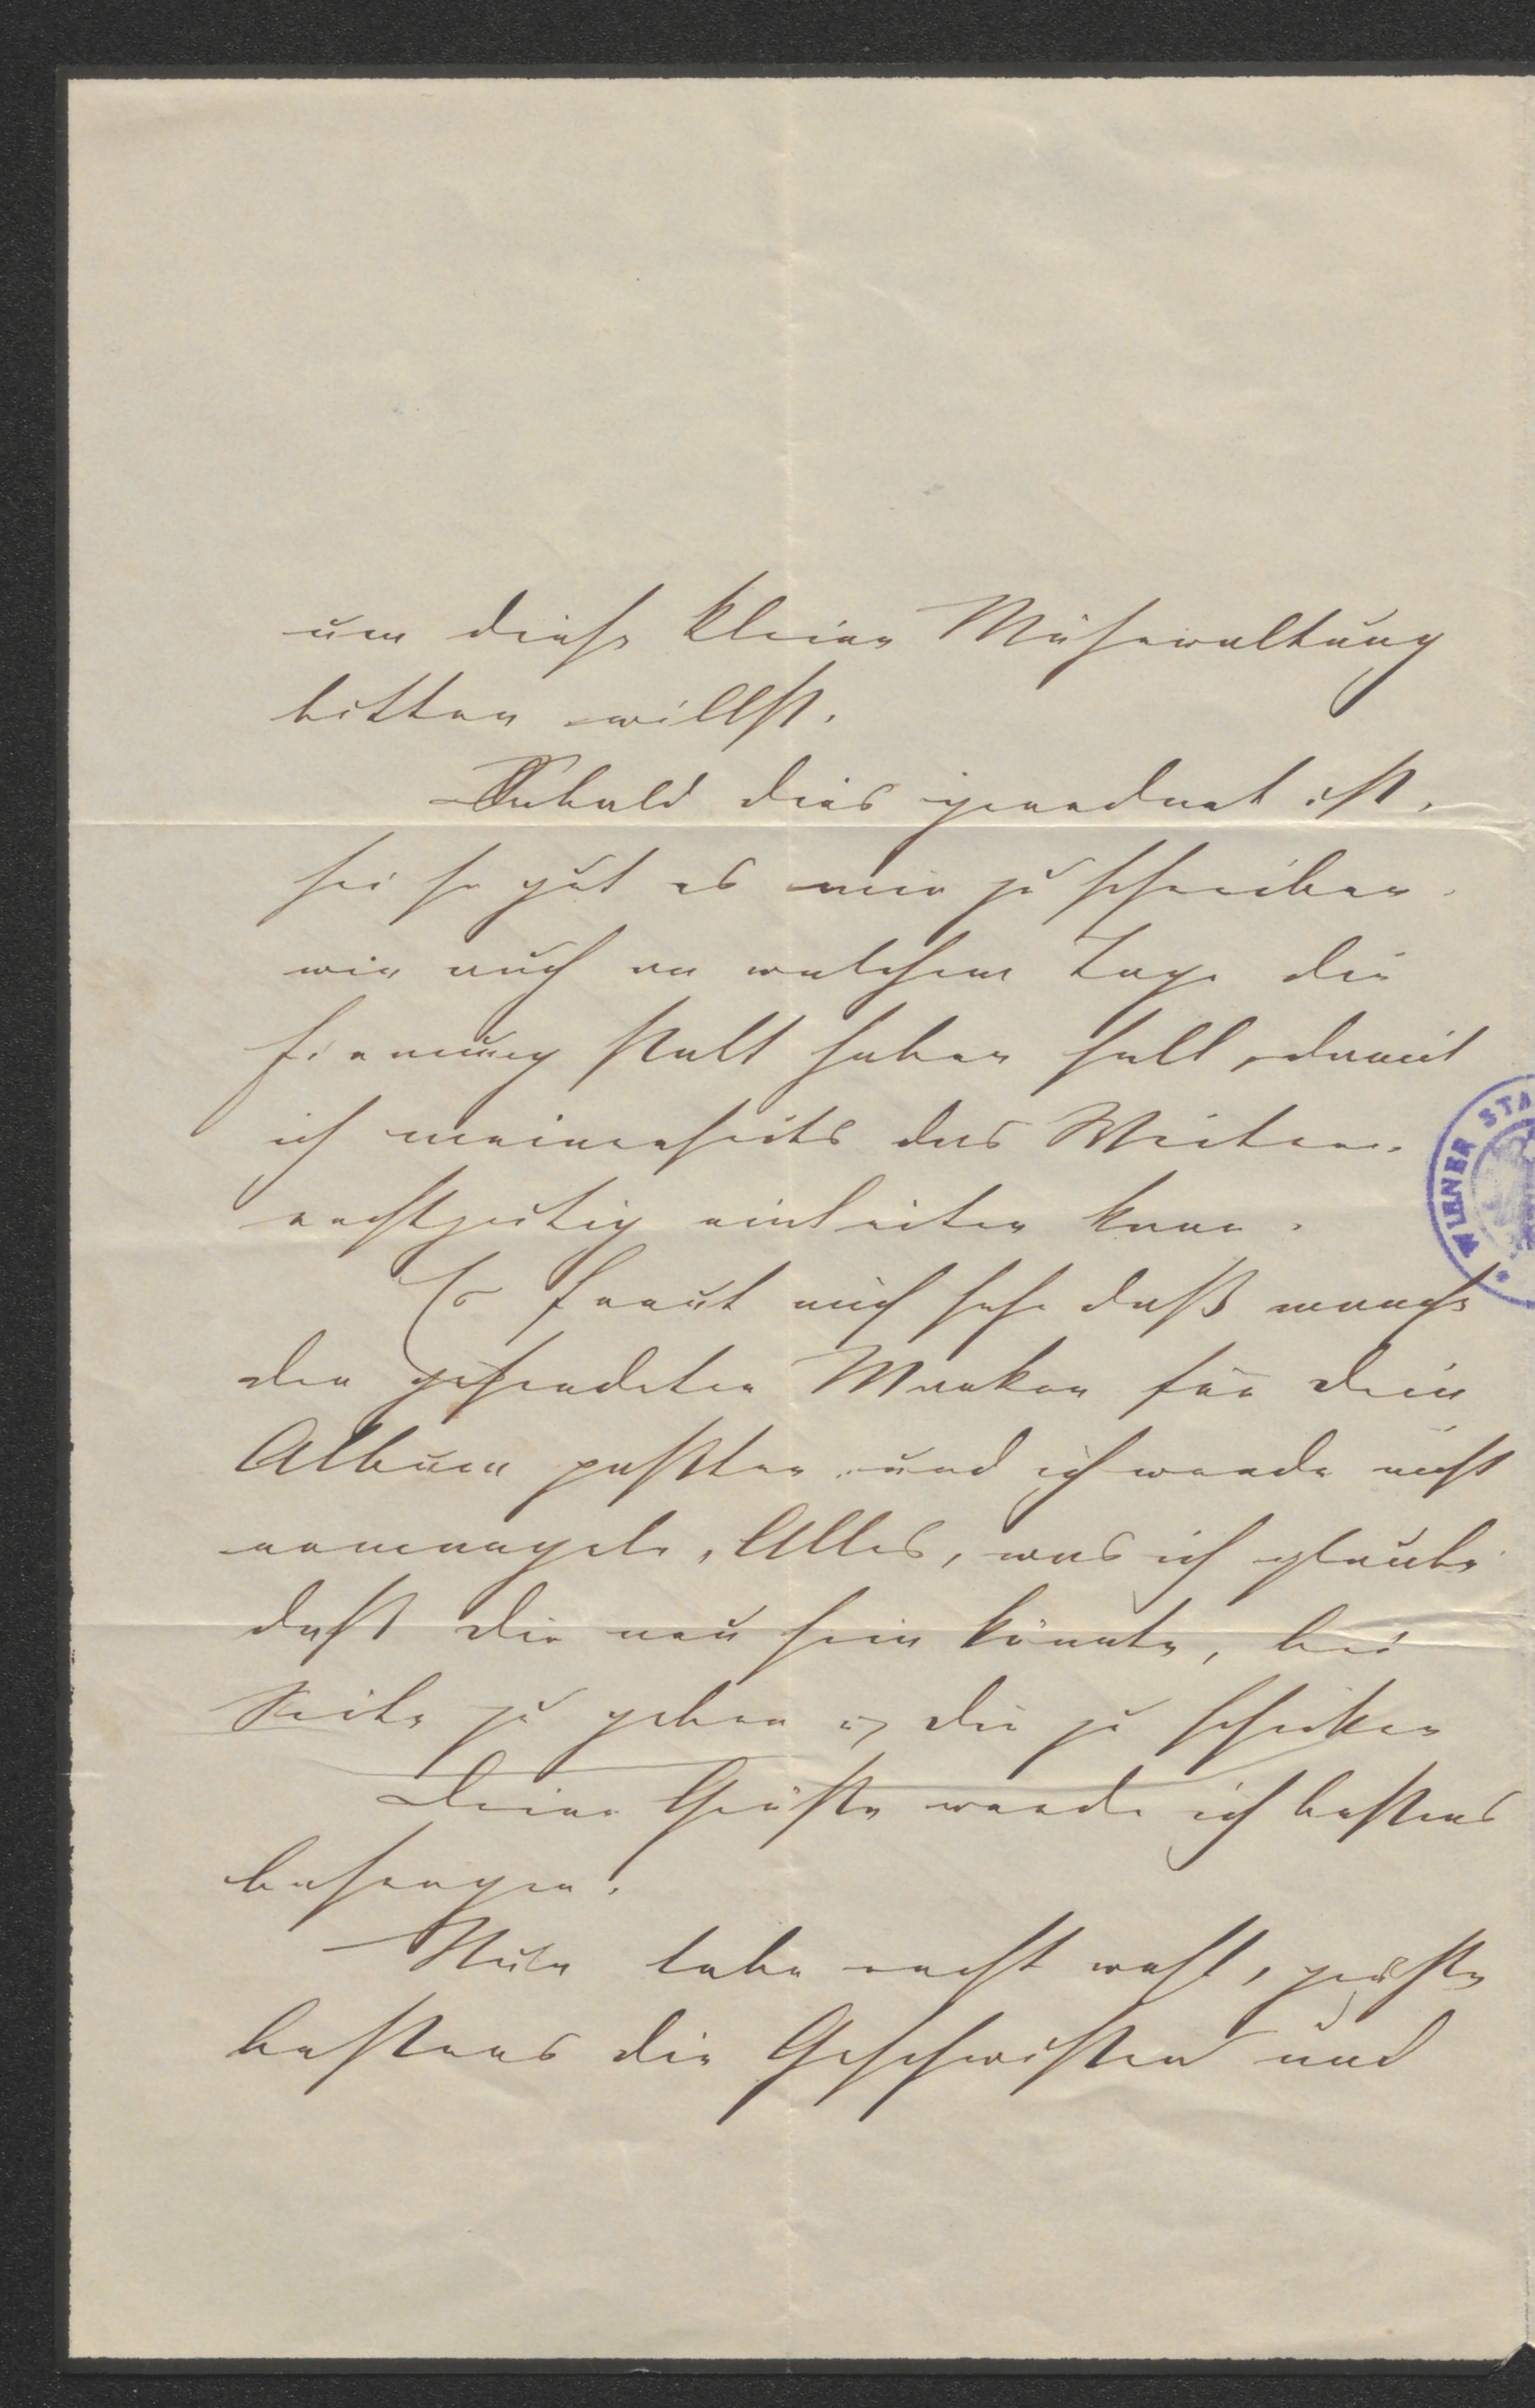 um diese kleine Mühewaltung
bitten willst.
Sobald dies geordnet ist,
sei so gut es mir zu schreiben
wie auch an welchem Tage die
Firmung statt haben soll, damit
ich meinerseits das Weitere
rechtzeitig einleiten kann.
Es freut mich sehr daß manche
der gesendeten Marken für Dein
Album paßten und ich werde nicht
ermangeln, Alles, was ich glaube
daß Dir neu sein könnte, bei
Seite zu geben u Dir zu schicken
Deine Grüße werde ich bestens
besorgen.
Nun lebe recht wohl, grüße
bestens die Geschwister und
WIENER STA